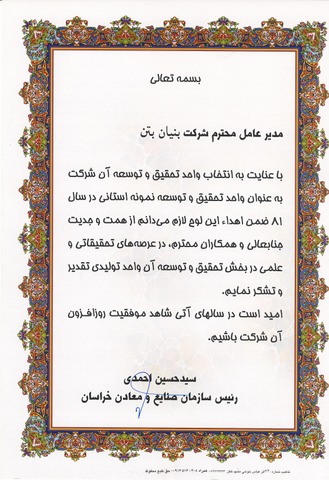 بسمه تعالی
مدیر عامل محترم شرکت بنیان بتن
با عنایت به انتخاب واحد تحقیق و توسعه آن شرکت
به عنوان واحد تحقیق و توسعه نمونه استانی در سال
۸۱ ضمن اهداء این لوح لازم می‌دانم از همت و جدیت
جنابعالی و همکاران محترم، در عرصه‌های تحقیقاتی و
علمی در بخش تحقیق و توسعه آن واحد تولیدی تقدیر
و تشکر نمایم.
امید است در سالهای آتی شاهد موفقیت روزافزون
آن شرکت باشیم.
سیدحسین احمدی
رئیس سازمان صنایع و معادن خراسان